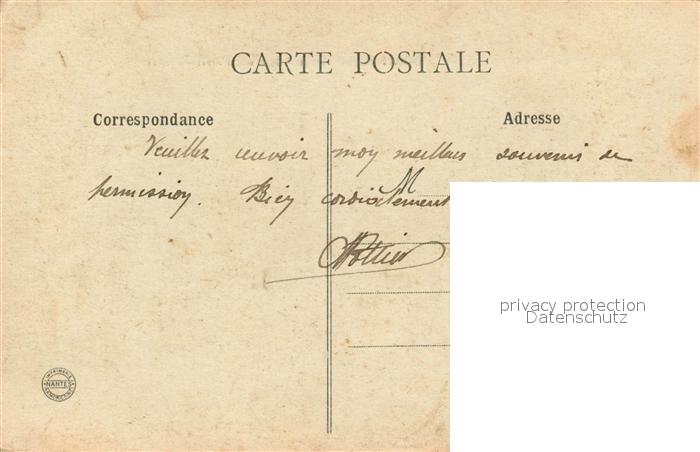 CARTE POSTALE
Correspondance
Adresse
Veuillez recevoir mon meilleur souvenir de
permission. Bien cordialement
M
Pottier
privacy protection
Datenschutz
NANTES